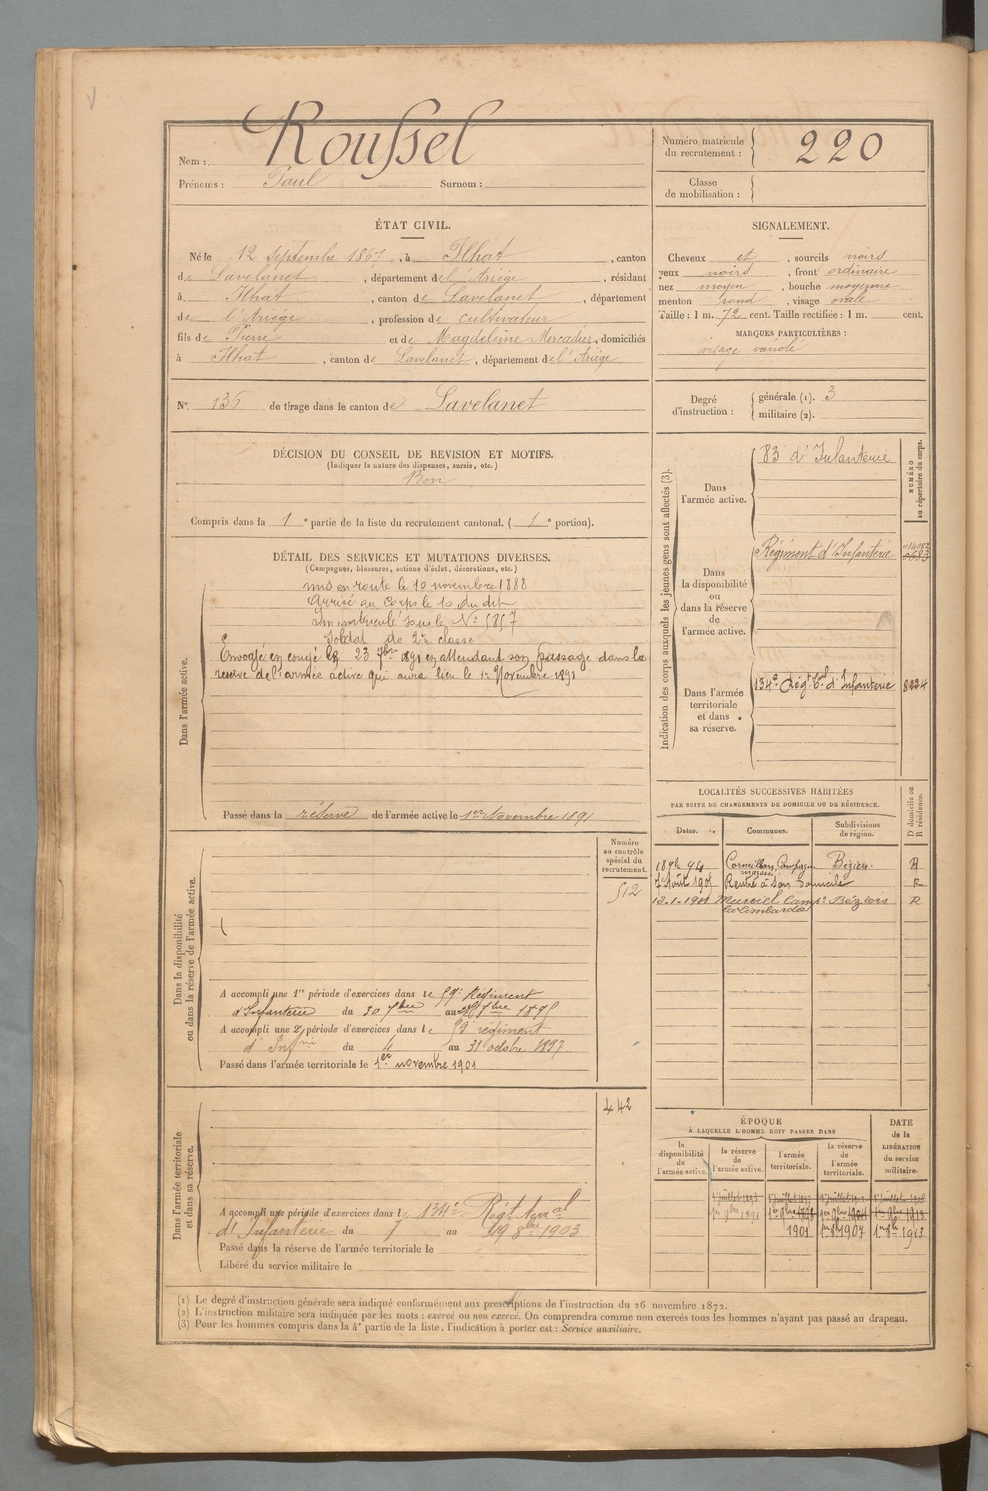 Nom : Roussel
Prénoms : Paul Surnom :
Numéro matricule du recrutement : 220
Classe de mobilisation :
ÉTAT CIVIL.
Né le 12 septembre 1867, à Ilhat, canton
de Lavelanet, département de l'Ariège, résidant
à Ilhat, canton de Lavelanet, département
de l'Ariège, profession de cultivateur
fils de Pierre et de Magdeleine Mercadier, domiciliés
à Ilhat, canton de Lavelanet, département de l'Ariège
N° 136 de tirage dans le canton de Lavelanet
DÉCISION DU CONSEIL DE REVISION ET MOTIFS.
(Indiquer la nature des dispenses, sursis, etc.)
Bon
Compris dans la 1e partie de la liste du recrutement cantonal. (1e portion).
DÉTAIL DES SERVICES ET MUTATIONS DIVERSES.
(Campagnes, blessures, actions d'éclat, décorations, etc.)
Dans l'armée active.
mis en route le 10 novembre 1888
Arrivé au Corps le 10 du dit
Immatriculé sous le N°
Soldat de 2e classe
Envoyé en congé le 23 7bre 1891 en attendant son passage dans la
réserve de l'armée active qui aura lieu le 1er Novembre 1891
Passé dans la réserve de l'armée active le 1er Novembre 1891
Dans la disponibilité
ou dans la réserve de l'armée active.
Numéro
au contrôle
spécial du
recrutement.
512
A accompli une 1re période d'exercices dans le Régiment
d'Infanterie du 30 au
A accompli une 2e période d'exercices dans le régiment
d'Infrie du 4 au 31 octobre 1897
Passé dans l'armée territoriale le 1er novembre 1901
Dans l'armée territoriale
et dans sa réserve.
442
A accompli une période d'exercices dans le 134e Régt terral
d'Infanterie du 7 au 19 8bre 1903
Passé dans la réserve de l'armée territoriale le
Libéré du service militaire le
SIGNALEMENT.
Cheveux et, sourcils noirs
yeux noirs, front ordinaire
nez moyen, bouche moyenne
menton rond, visage ovale
Taille : 1 m. 72 cent. Taille rectifiée : 1 m. cent.
MARQUES PARTICULIÈRES :
visage variolé
Degré d'instruction : générale (1). 3
militaire (2).
Indication des corps auxquels les jeunes gens sont affectés (3).
NUMÉRO
au répertoire du corps.
Dans
l'armée active.
83 d'Infanterie
Dans
la disponibilité
ou
dans la réserve
de
l'armée active.
Régiment d'Infanterie
Dans l'armée
territoriale
et dans
sa réserve.
134e Régt tal d'Infanterie
LOCALITÉS SUCCESSIVES HABITÉES
PAR SUITE DE CHANGEMENTS DE DOMICILE OU DE RÉSIDENCE.
Dates. Communes. Subdivisions de région. D domicile ou R résidence.
Béziers. R
Rentré à son domicile R
Béziers R
ÉPOQUE
À LAQUELLE L'HOMME DOIT PASSER DANS
la disponibilité de l'armée active.
la réserve de l'armée active.
l'armée territoriale.
la réserve de l'armée territoriale.
DATE de la LIBÉRATION du service militaire.
1er 9bre 1891
1901
1907
1913
(1) Le degré d'instruction générale sera indiqué conformément aux prescriptions de l'instruction du 26 novembre 1872.
(2) L'instruction militaire sera indiquée par les mots : exercé ou non exercé. On comprendra comme non exercés tous les hommes n'ayant pas passé au drapeau.
(3) Pour les hommes compris dans la 4e partie de la liste, l'indication à porter est : Service auxiliaire.